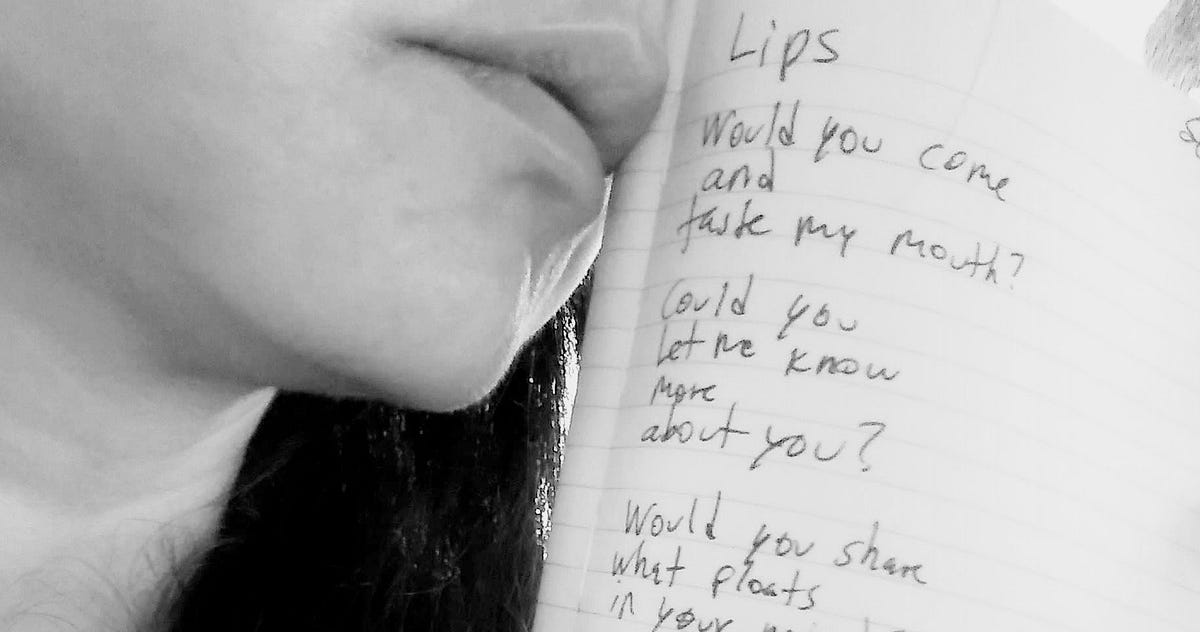 Lips
Would you come
and
taste my mouth?
Could you
let me know
more
about you?
Would you share
what ploats
in your